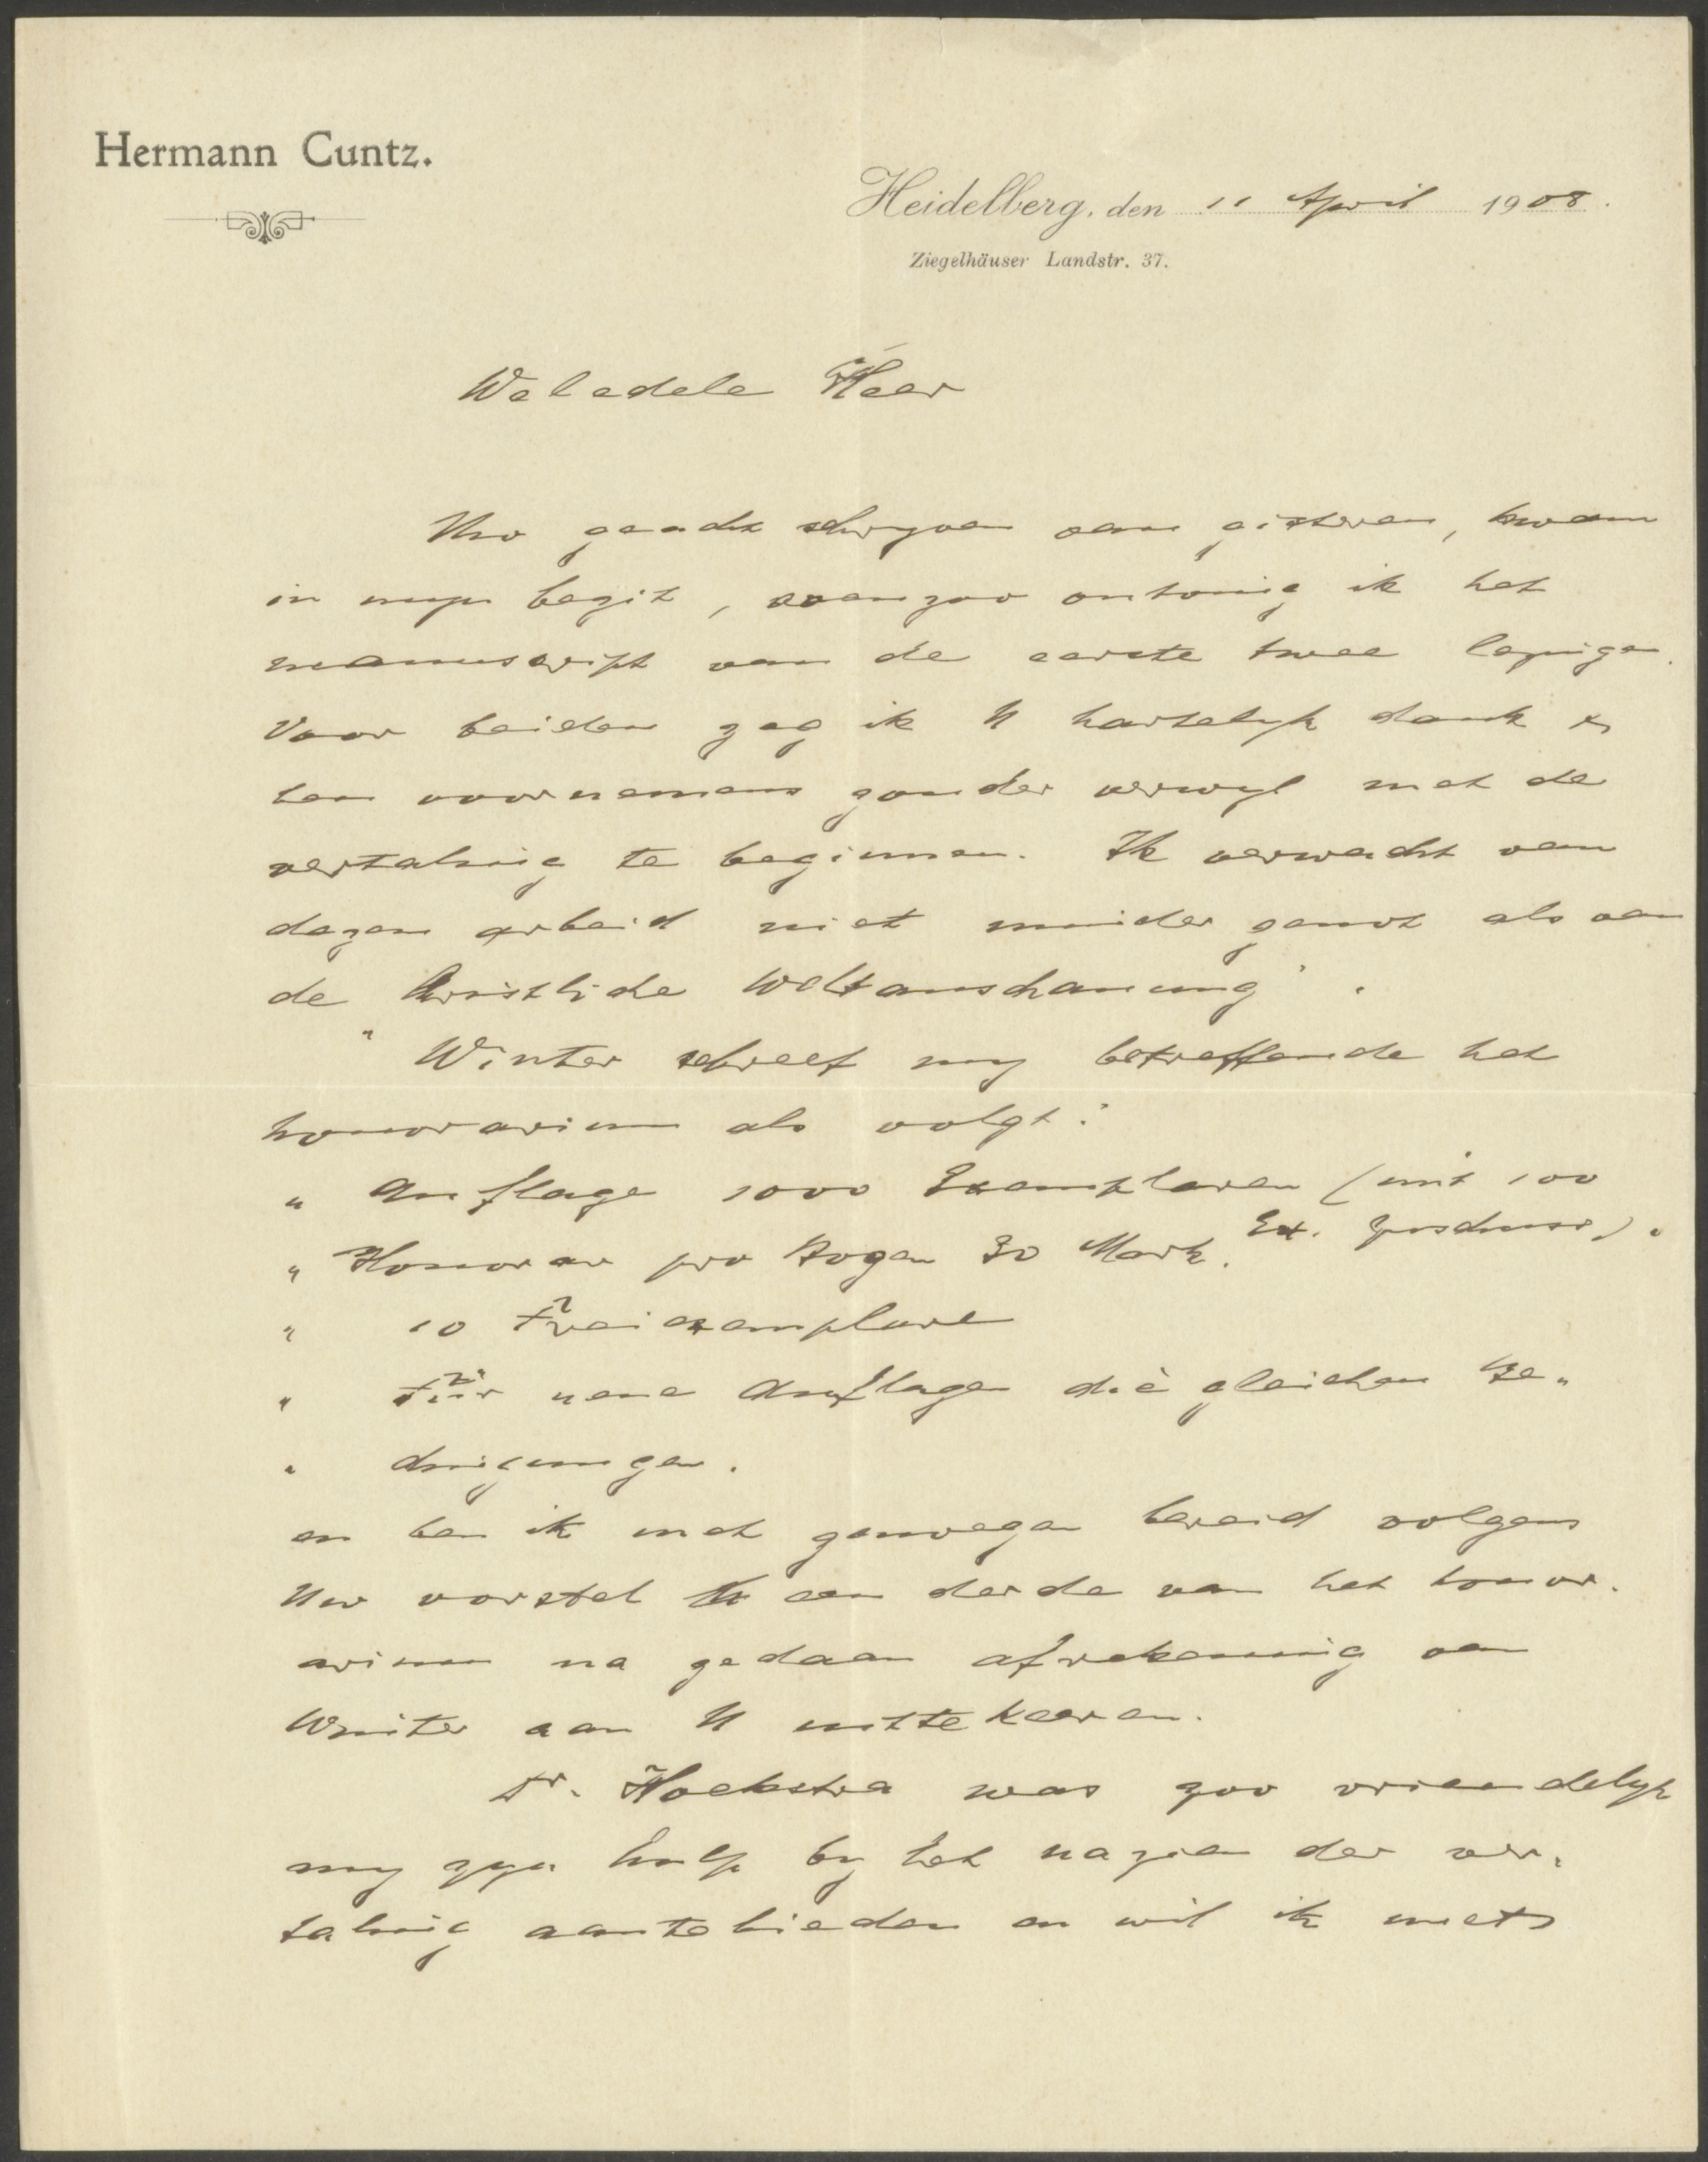 Hermann Cuntz.
Heidelberg, den 11 April 1908.
Ziegelhäuser Landstr. 37.
Weledele Heer
Uw geacht schryven van gisteren, kwam
in myn bezit, evenzoo ontving ik het
manuscript van de eerste twee lezingen.
Voor beiden zeg ik U hartelyk dank &
ben voornemens zonder verwyl met de
vertaling te beginnen. Ik verwacht van
dezen arbeid niet minder genot als van
de "Christliche Weltanschauung".
Winter schreef my betreffende het
honorarium als volgt:
" Auflage 1000 Exemplaren (mit 100
Ex. Zuschuss).
" Honorar pro Bogen 30 Mark.
" 10 Freiexemplare
" Für neue Auflagen die gleichen Be„
" dingungen.
en ben ik met genoegen bereid volgens
Uw vorstel U een derde van het honor.
arium na gedaan afrekening van
Winter aan U uittekeeren.
Dr. Hoekstra was zoo vriendelyk
my zyn hulp by het nazien der ver„
taling aantebieden en wil ik met